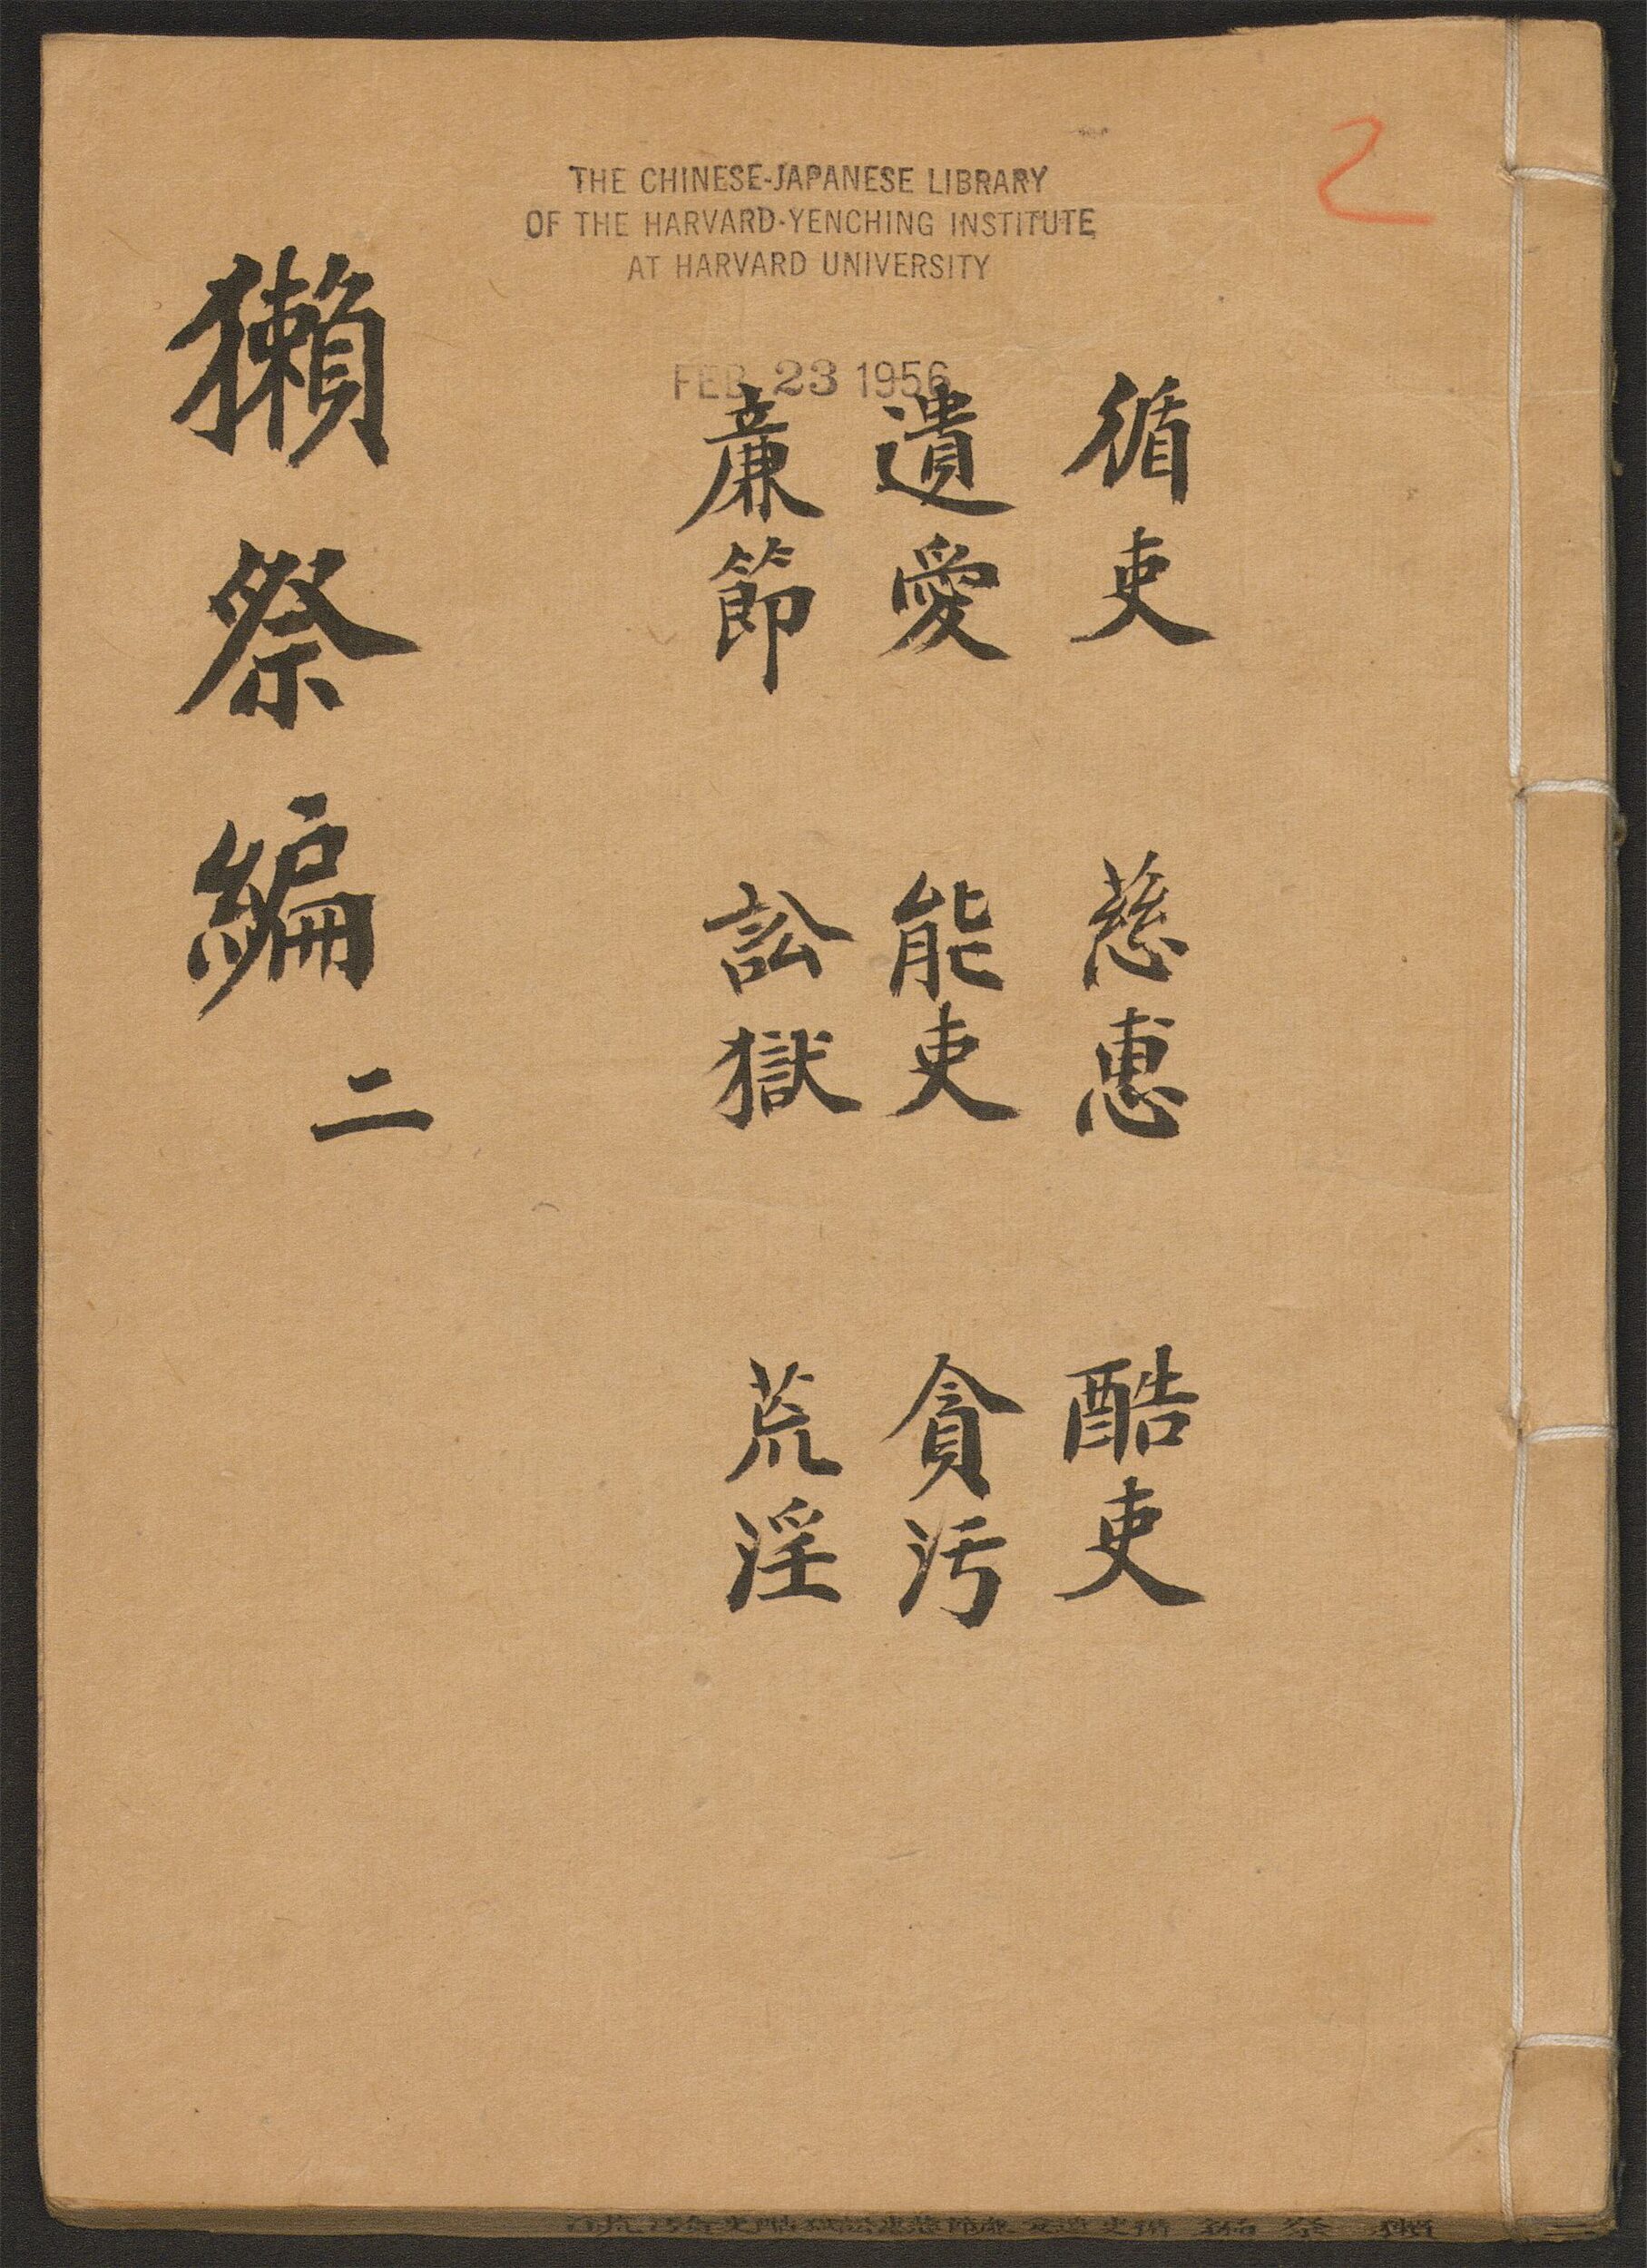 THE CHINESE-JAPANESE LIBRARY
OF THE HARVARD-YENCHING INSTITUTE
AT HARVARD UNIVERSITY
FEB 23 1956
2
循吏 慈惠 酷吏
遺愛 能吏 貪汚
廉節 訟獄 荒淫
獺祭編 二